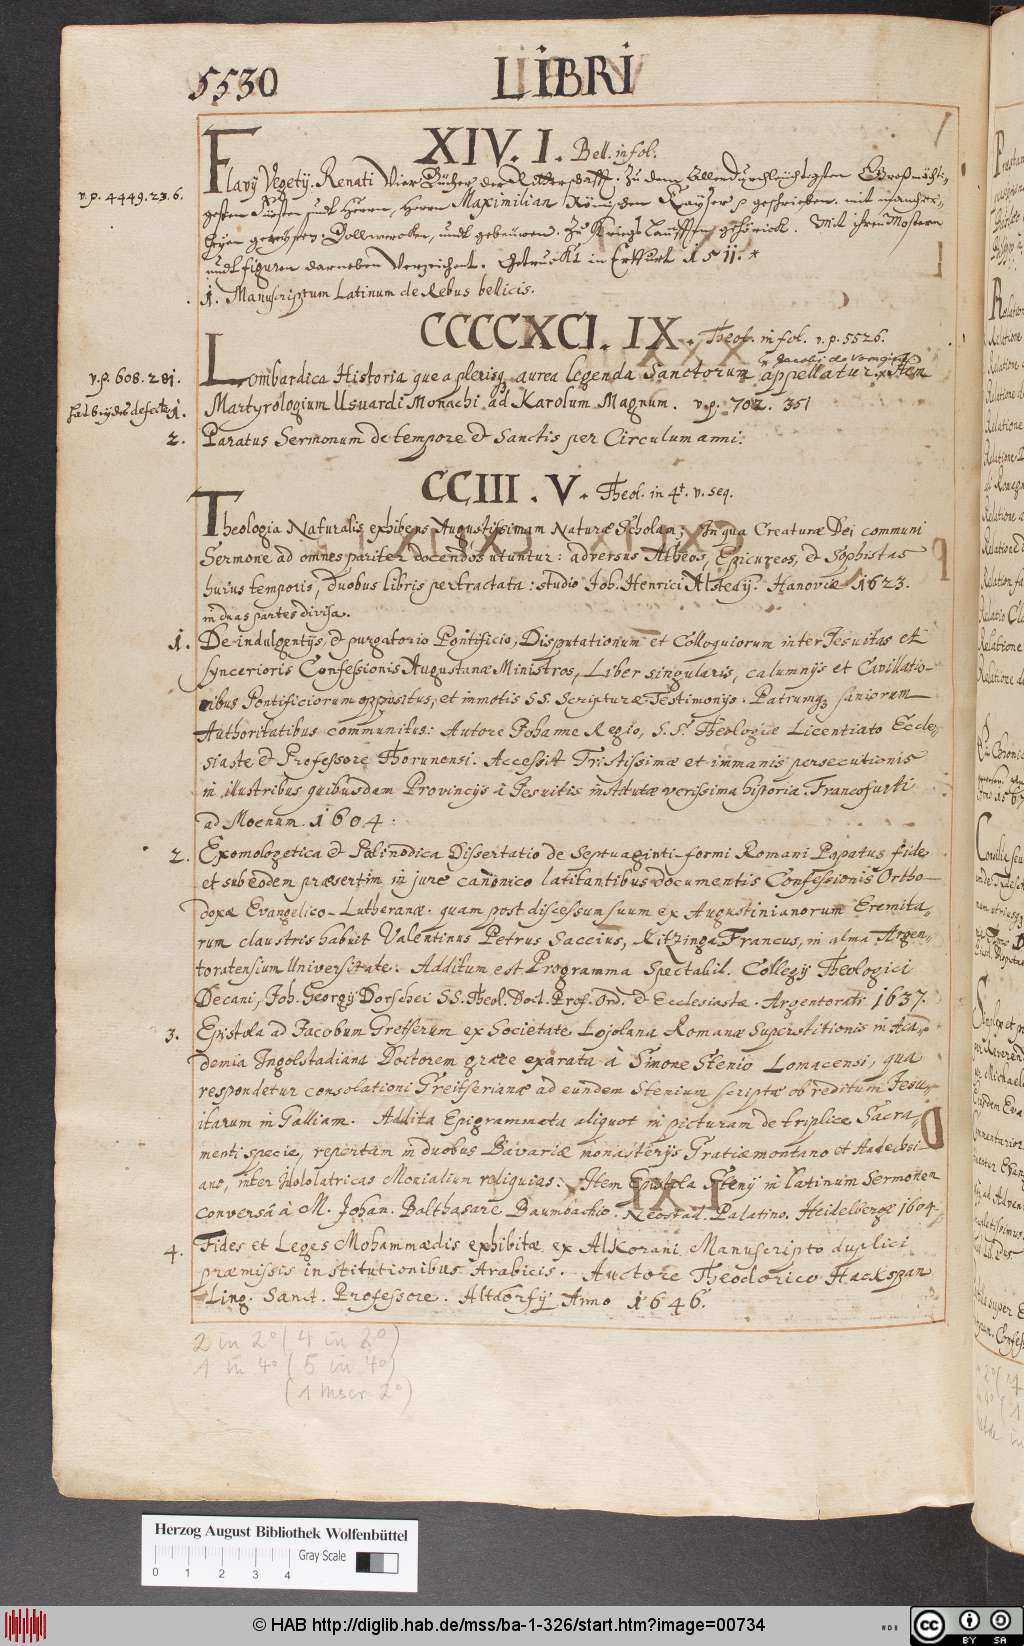 5530 LIBRI
XIV. I. Bell. in fol.
v. p. 4449. 23. 6.
Flavÿ Vegetÿ Renati Vier Bücher der Ritterschafft. Zu dem Allerdurchleuchtigsten Großmächti-
gsten Fürsten undt Herrn, Herrn Maximilian Römischen Kayser p geschrieben. mit mancher-
leyen gerüsten Bollwercken, undt gebeuwen. Zu Kriegs läufften gehörich. Mit ihren Mostern
undt figuren darneben Verzeichent. Getruckt in Erffurt 1511. *
1. Manuscriptum Latinum de Rebus bellicis.
CCCCXCI. IX. Theol. in fol. v. p. 5526.
v. p. 608. 281.
Jacobi de Voragine
Lombardica Historia que a plerisq3 aurea legenda Sanctorum appellatur. Item
1. Martyrologium Usuardi Monachi ad Karolum Magnum. v. p. 702. 351
2. Paratus Sermonum de tempore & Sanctis per Circulum anni.
CCIII. V. Theol. in 4t. v. seq.
Theologia Naturalis exhibens Augustissimam Naturæ Scholam; In qua Creaturæ Dei communi
Sermone ad omnes pariter docendos utuntur: adversus Atheos, Epicureos, & Sophistas
hujus temporis, duobus libris pertractata: studio Joh. Henrici Alstedÿ. Hanoviæ 1623.
in duas partes divisa.
1. De indulgentÿs, & purgatorio Pontificio, Disputationum et Colloquiorum inter Jesuitas et
syncerioris Confessionis Augustanæ Ministros, Liber singularis, calumnÿs et Cavillatio-
nibus Pontificiorum oppositus, et immotis SS. Scripturæ Testimonÿs. Patrumq3 saniorum
Authoritatibus communitus: Autore Johanne Regio, S. S. Theologiæ Licentiato Eccle-
siaste & Professore Thorunensi. Accessit Tristissimæ et immanis persecutionis
in illustribus quibusdam Provincÿs à Jesuitis institutæ verissima historia. Francofurti
ad Moenum. 1604.
2. Exomologetica & Palinodica Dissertatio de Septuaginti-formi Romani Papatus fide
et sub eodem præsertim in jure canonico latitantibus documentis Confessionis Ortho-
doxæ Evangelico-Lutheranæ. quam post discessum suum ex Augustinianorum Eremita-
rum claustris habuit Valentinus Petrus Saccius, Kitzinga Francus, in alma Argen-
toratensium Universitate. Additum est Programma Spectabil. Collegÿ Theologici
Decani, Joh. Georgÿ Dorschei SS. Theol. Doct. Prof. Ord. & Ecclesiastæ. Argentorati 1637.
3. Epistola ad Jacobum Gretserum ex Societate Lojolana Romanæ Superstitionis in Aca-
demia Ingolstadiana Doctorem græce exarata à Simone Stenio Lomacensi, qua
respondetur consolationi Gretserianæ ad eundem Stenium scriptæ ob reditum Jesu-
itarum in Galliam. Addita Epigrammata aliquot in picturam de triplice Sacra-
menti specie, repertam in duobus Bavariæ monasterÿs Gratiæmontano et Andechsi-
ano, inter Idololatricas Monialium reliquias: Item Epistola Stenÿ in latinum Sermonem
conversa à M. Johan. Balthasare Baumbachio. Neostad. Palatino. Heidelbergæ 1604.
4. Fides et Leges Mohammædis exhibitæ ex Alkorani Manuscripto duplici
præmissis institutionibus Arabicis. Auctore Theodorico Hackspan
Ling. Sanct. Professore. Altdorfÿ Anno 1646.
2 in 2° (4 in 2°)
1 in 4° (5 in 4°)
(1 Mscr. 2°)
Herzog August Bibliothek Wolfenbüttel
Gray Scale
0 1 2 3 4
© HAB http://diglib.hab.de/mss/ba-1-326/start.htm?image=00734
cc BY SA